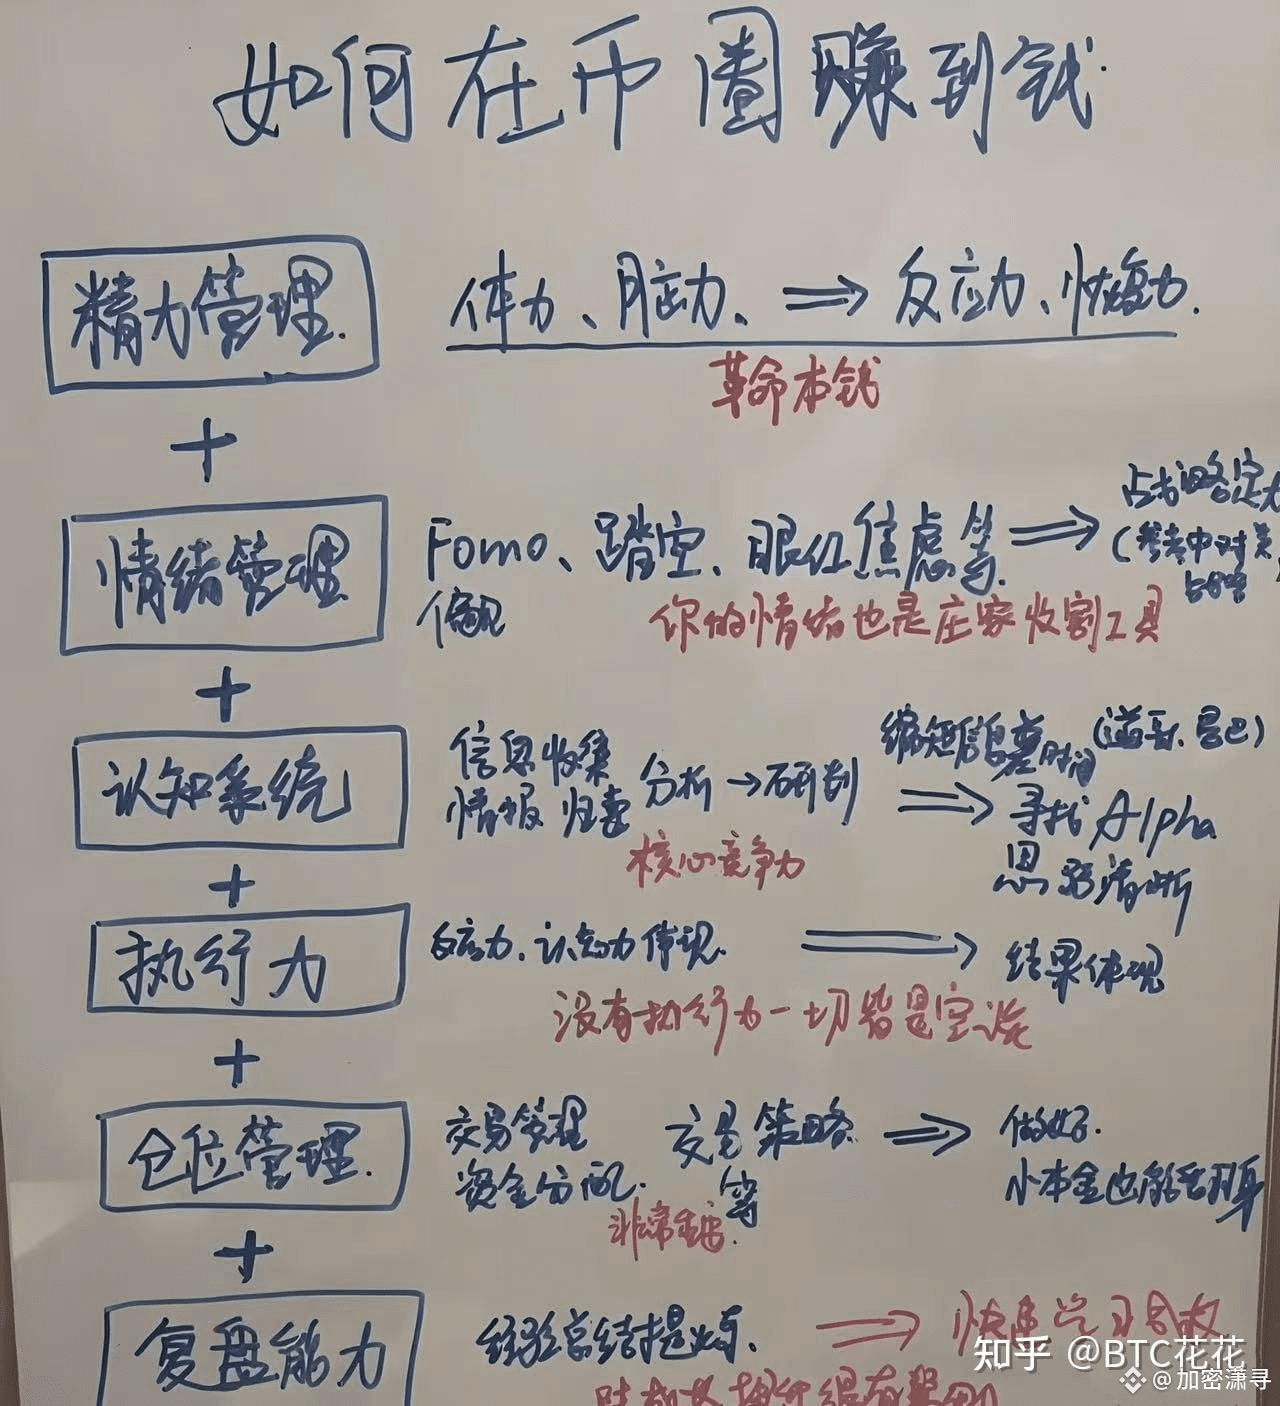 如何在币圈赚到钱
精力管理. 体力、脑力、 => 反应力、恢复力.
革命本钱
+
情绪管理 Fomo、踏空、眼红焦虑等. => 占战略定
(参考中对美
偏见 你的情绪也是庄家收割工具
+
认知系统 信息收集 分析 → 研判 => 缩短信息差时间
情报 归类 寻找Alpha
核心竞争力 思路清晰
+
执行力 反应力、认知力体现. => 结果体现
没有执行力一切皆是空谈
+
仓位管理. 交易管理 交易策略 => 做好.
资金分配. 等 小本金也能翻身
非常重要.
+
复盘能力 经验总结提炼. => 快速学习
知乎 @BTC花花
@加密潇寻